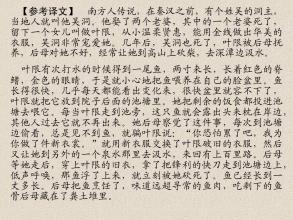 【参考译文】 南方人传说，在秦汉之前，有个姓吴的洞主，
当地人就叫他吴洞。他娶了两个老婆，其中一个老婆死了，
留下一个女儿叫叶限，从小温柔贤惠，能用金线做出华美的
衣服，吴洞非常宠爱她。几年后，吴洞也死了，叶限被后母抚
养，后母对她不好，经常让她到高山上砍柴，去深潭边汲水。
叶限有次打水的时候得到一尾鱼，两寸来长，长着红色的脊
鳍，金色的眼睛，于是就小心地把鱼喂养在自己的脸盆里。鱼
长得很快，几乎每天都能看出变化来，很快盆里就容不下了，
叶限就把它放到院子后面的池塘里，她把剩余的饭食都投进池
塘去喂它。每当叶限走到池旁，这只鱼就会露出头来枕在岸边，
其他人过去它就不再出来。她后母感觉了这件事，每次到池塘
边偷看，总是见不到鱼，就骗叶限说：“你恐怕累了吧，我为
你做了件新衣裳。”就用新衣服交换了叶限破旧的衣服，然后
又让她到另外的一个泉水那里去汲水，来回有上百里路，后母
等她走后，穿上叶限的旧衣，拿了把锋利的快刀走到池塘边上，
低声呼唤，那鱼浮了上来，就立刻被她砍死了，鱼已经长到一
丈多长。后母把鱼烹饪了，味道远超寻常的鱼肉，吃剩下的鱼
骨后母藏在了粪土堆里，